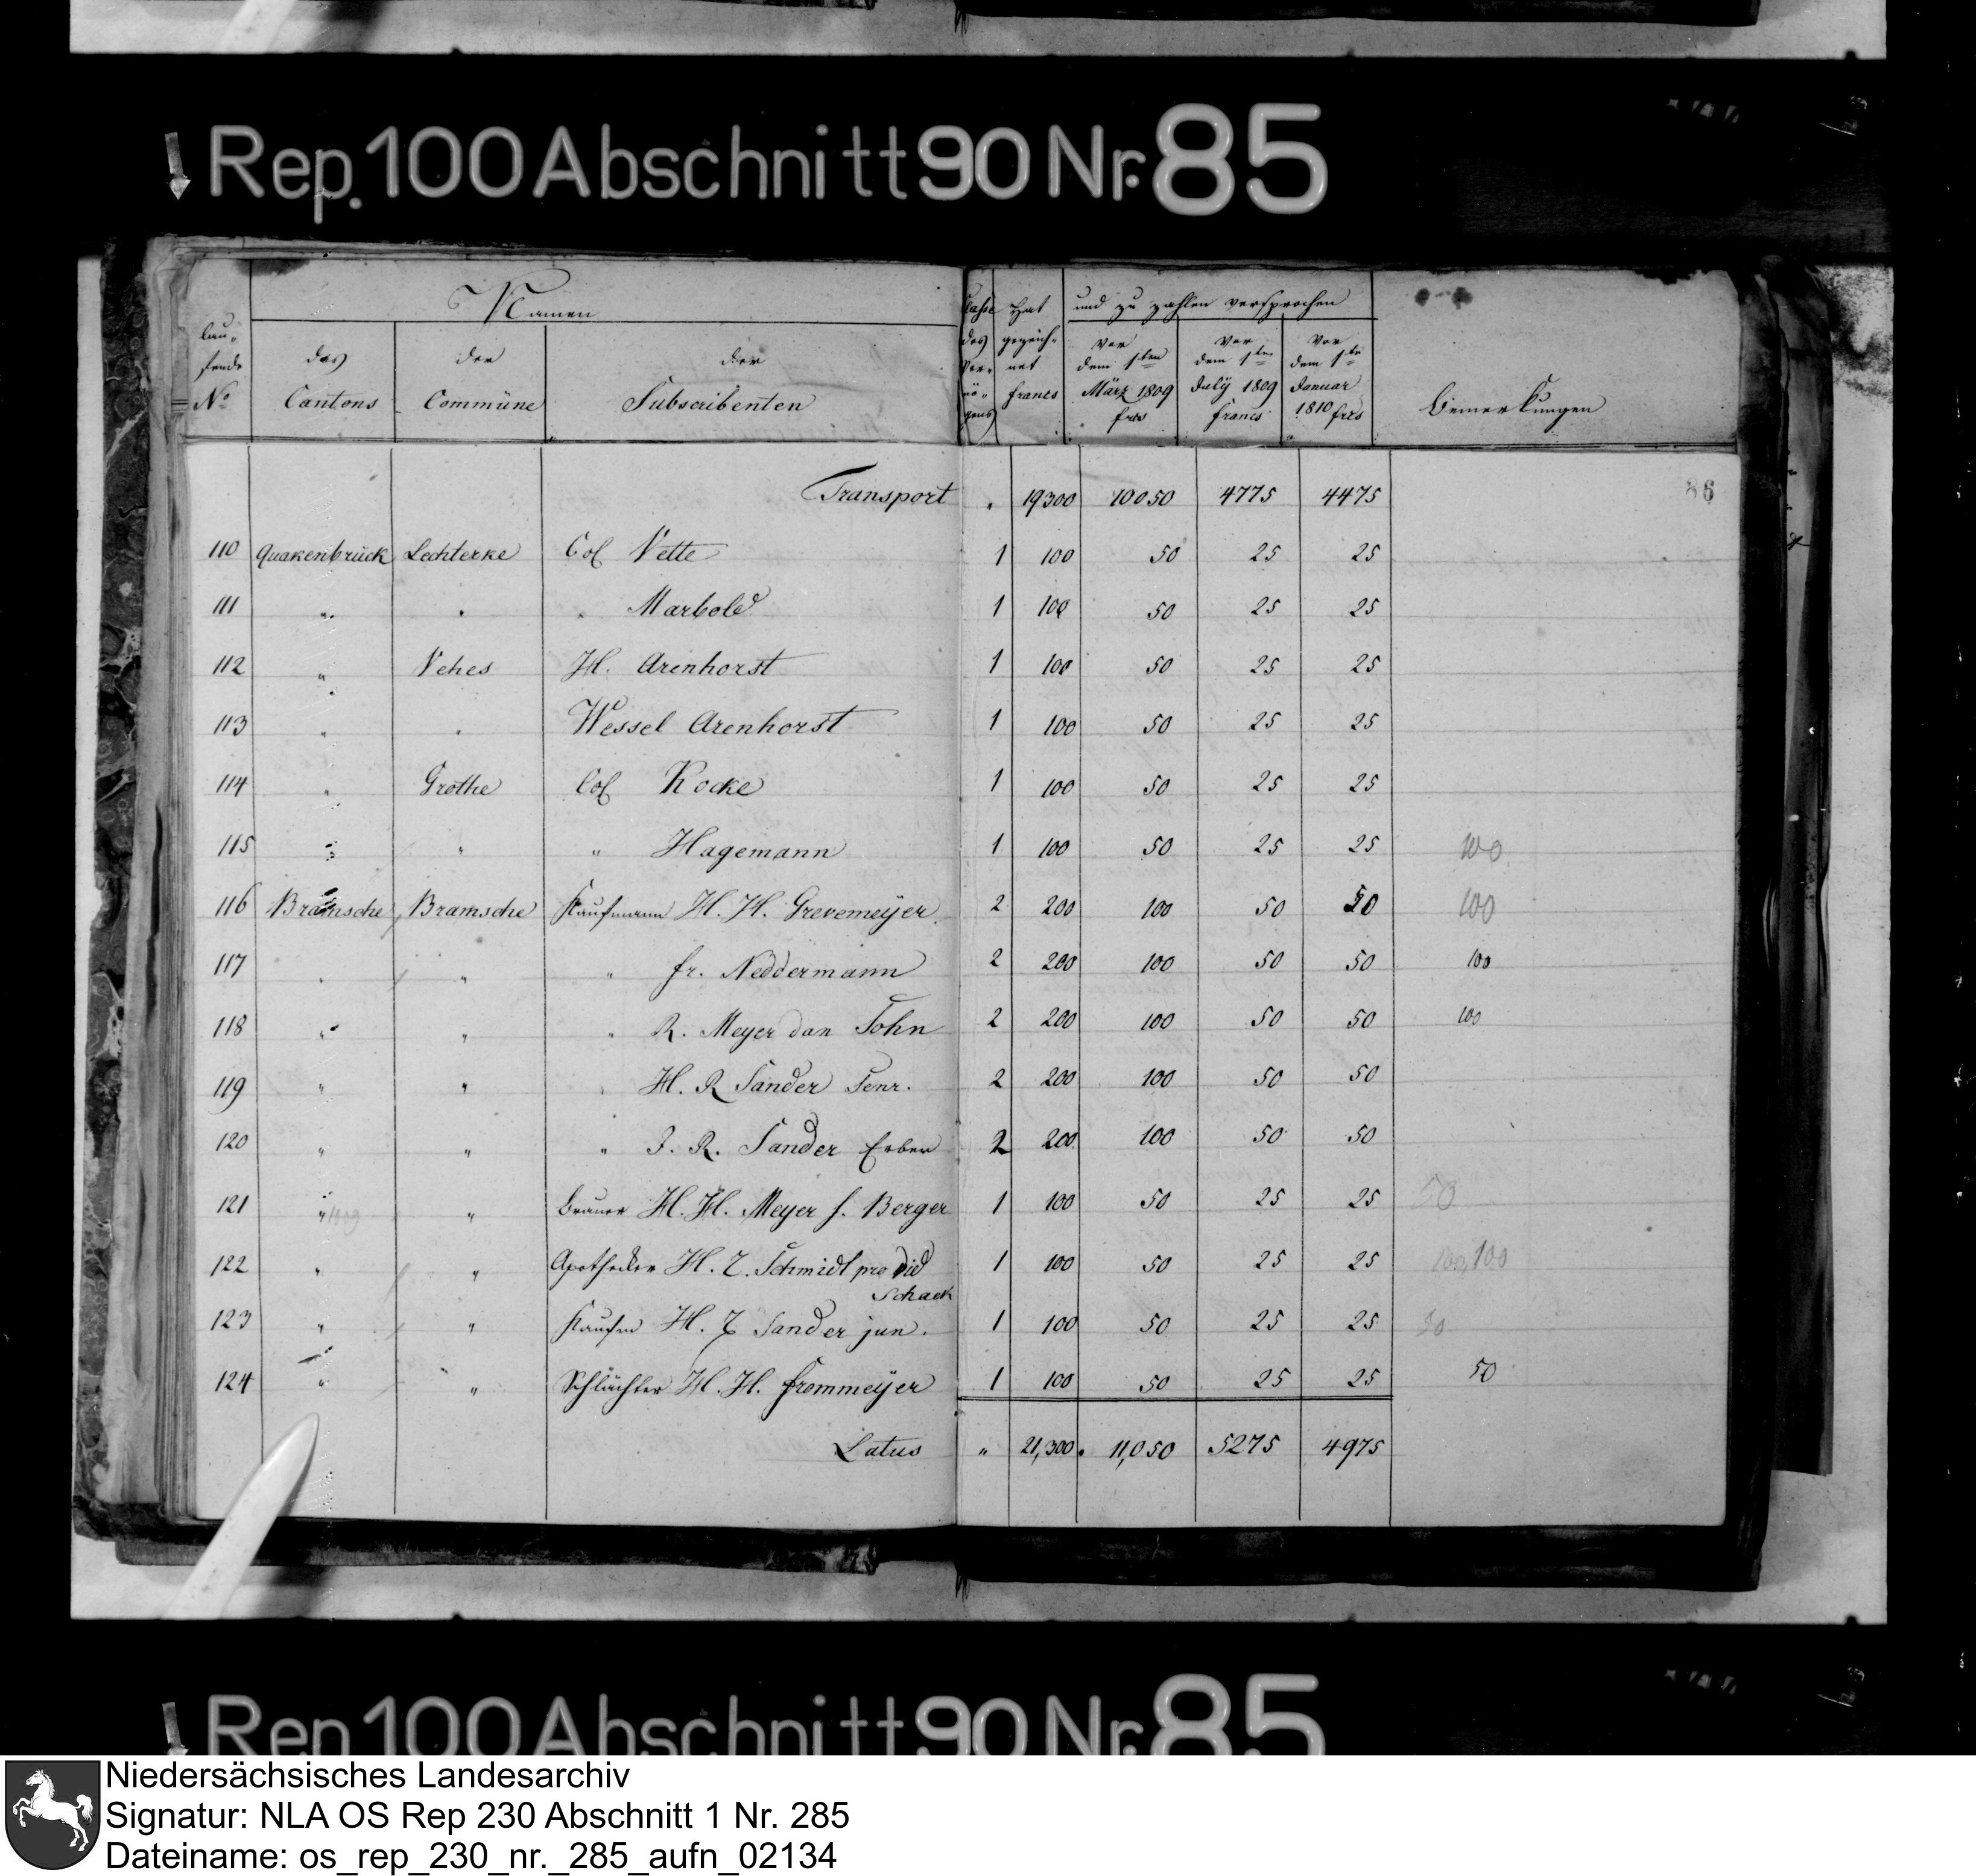 Rep. 100 Abschnitt 90 Nr. 85
Namen
lau-
fende
No
des
Cantons
der
Commüne
der
Subscribenten
Classe
des
Ver-
mö-
gens
Hat
gezeich-
net
francs
und zu zahlen versprochen
vor
dem 1ten
März 1809
frcs
vor
dem 1ten
July 1809
francs
vor
dem 1te
Januar
1810 frcs
Bemerkungen
86
Transport " 19300 10050 4775 4475
110 Quakenbrück Lechterke Col Vette 1 100 50 25 25
111 " " " Marbold 1 100 50 25 25
112 " Vehes H. Arenhorst 1 100 50 25 25
113 " " Wessel Arenhorst 1 100 50 25 25
114 " Grothe Col Kocke 1 100 50 25 25
115 " " " Hagemann 1 100 50 25 25 100
116 Bramsche Bramsche Kaufmann H. H. Grevemeyer 2 200 100 50 50 100
117 " " " fr. Neddermann 2 200 100 50 50 100
118 " " " R. Meyer dan Sohn 2 200 100 50 50 100
119 " " " H. R Sander Senr. 2 200 100 50 50
120 " " " J. R. Sander Erben 2 200 100 50 50
121 " " Brauer H. H. Meyer f. Berger 1 100 50 25 25 50
122 " " Apotheker H. T. Schmidt pro vid 1 100 50 25 25 100, 100
Schack
123 " " Kaufm H. T Sander jun. 1 100 50 25 25 50
124 " " Schlächter H. H. Frommeyer 1 100 50 25 25 50
Latus " 21,300. 11,050 5275 4975
Rep. 100 Abschnitt 90 Nr. 85
Niedersächsisches Landesarchiv
Signatur: NLA OS Rep 230 Abschnitt 1 Nr. 285
Dateiname: os_rep_230_nr._285_aufn_02134